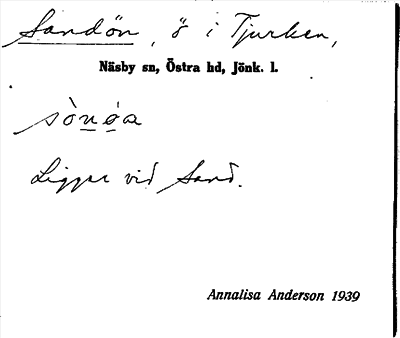 Sandön, ö i Tjurken,
Näsby sn, Östra hd, Jönk. l.
sònǿa
Ligger vid Sand.
Annalisa Anderson 1939